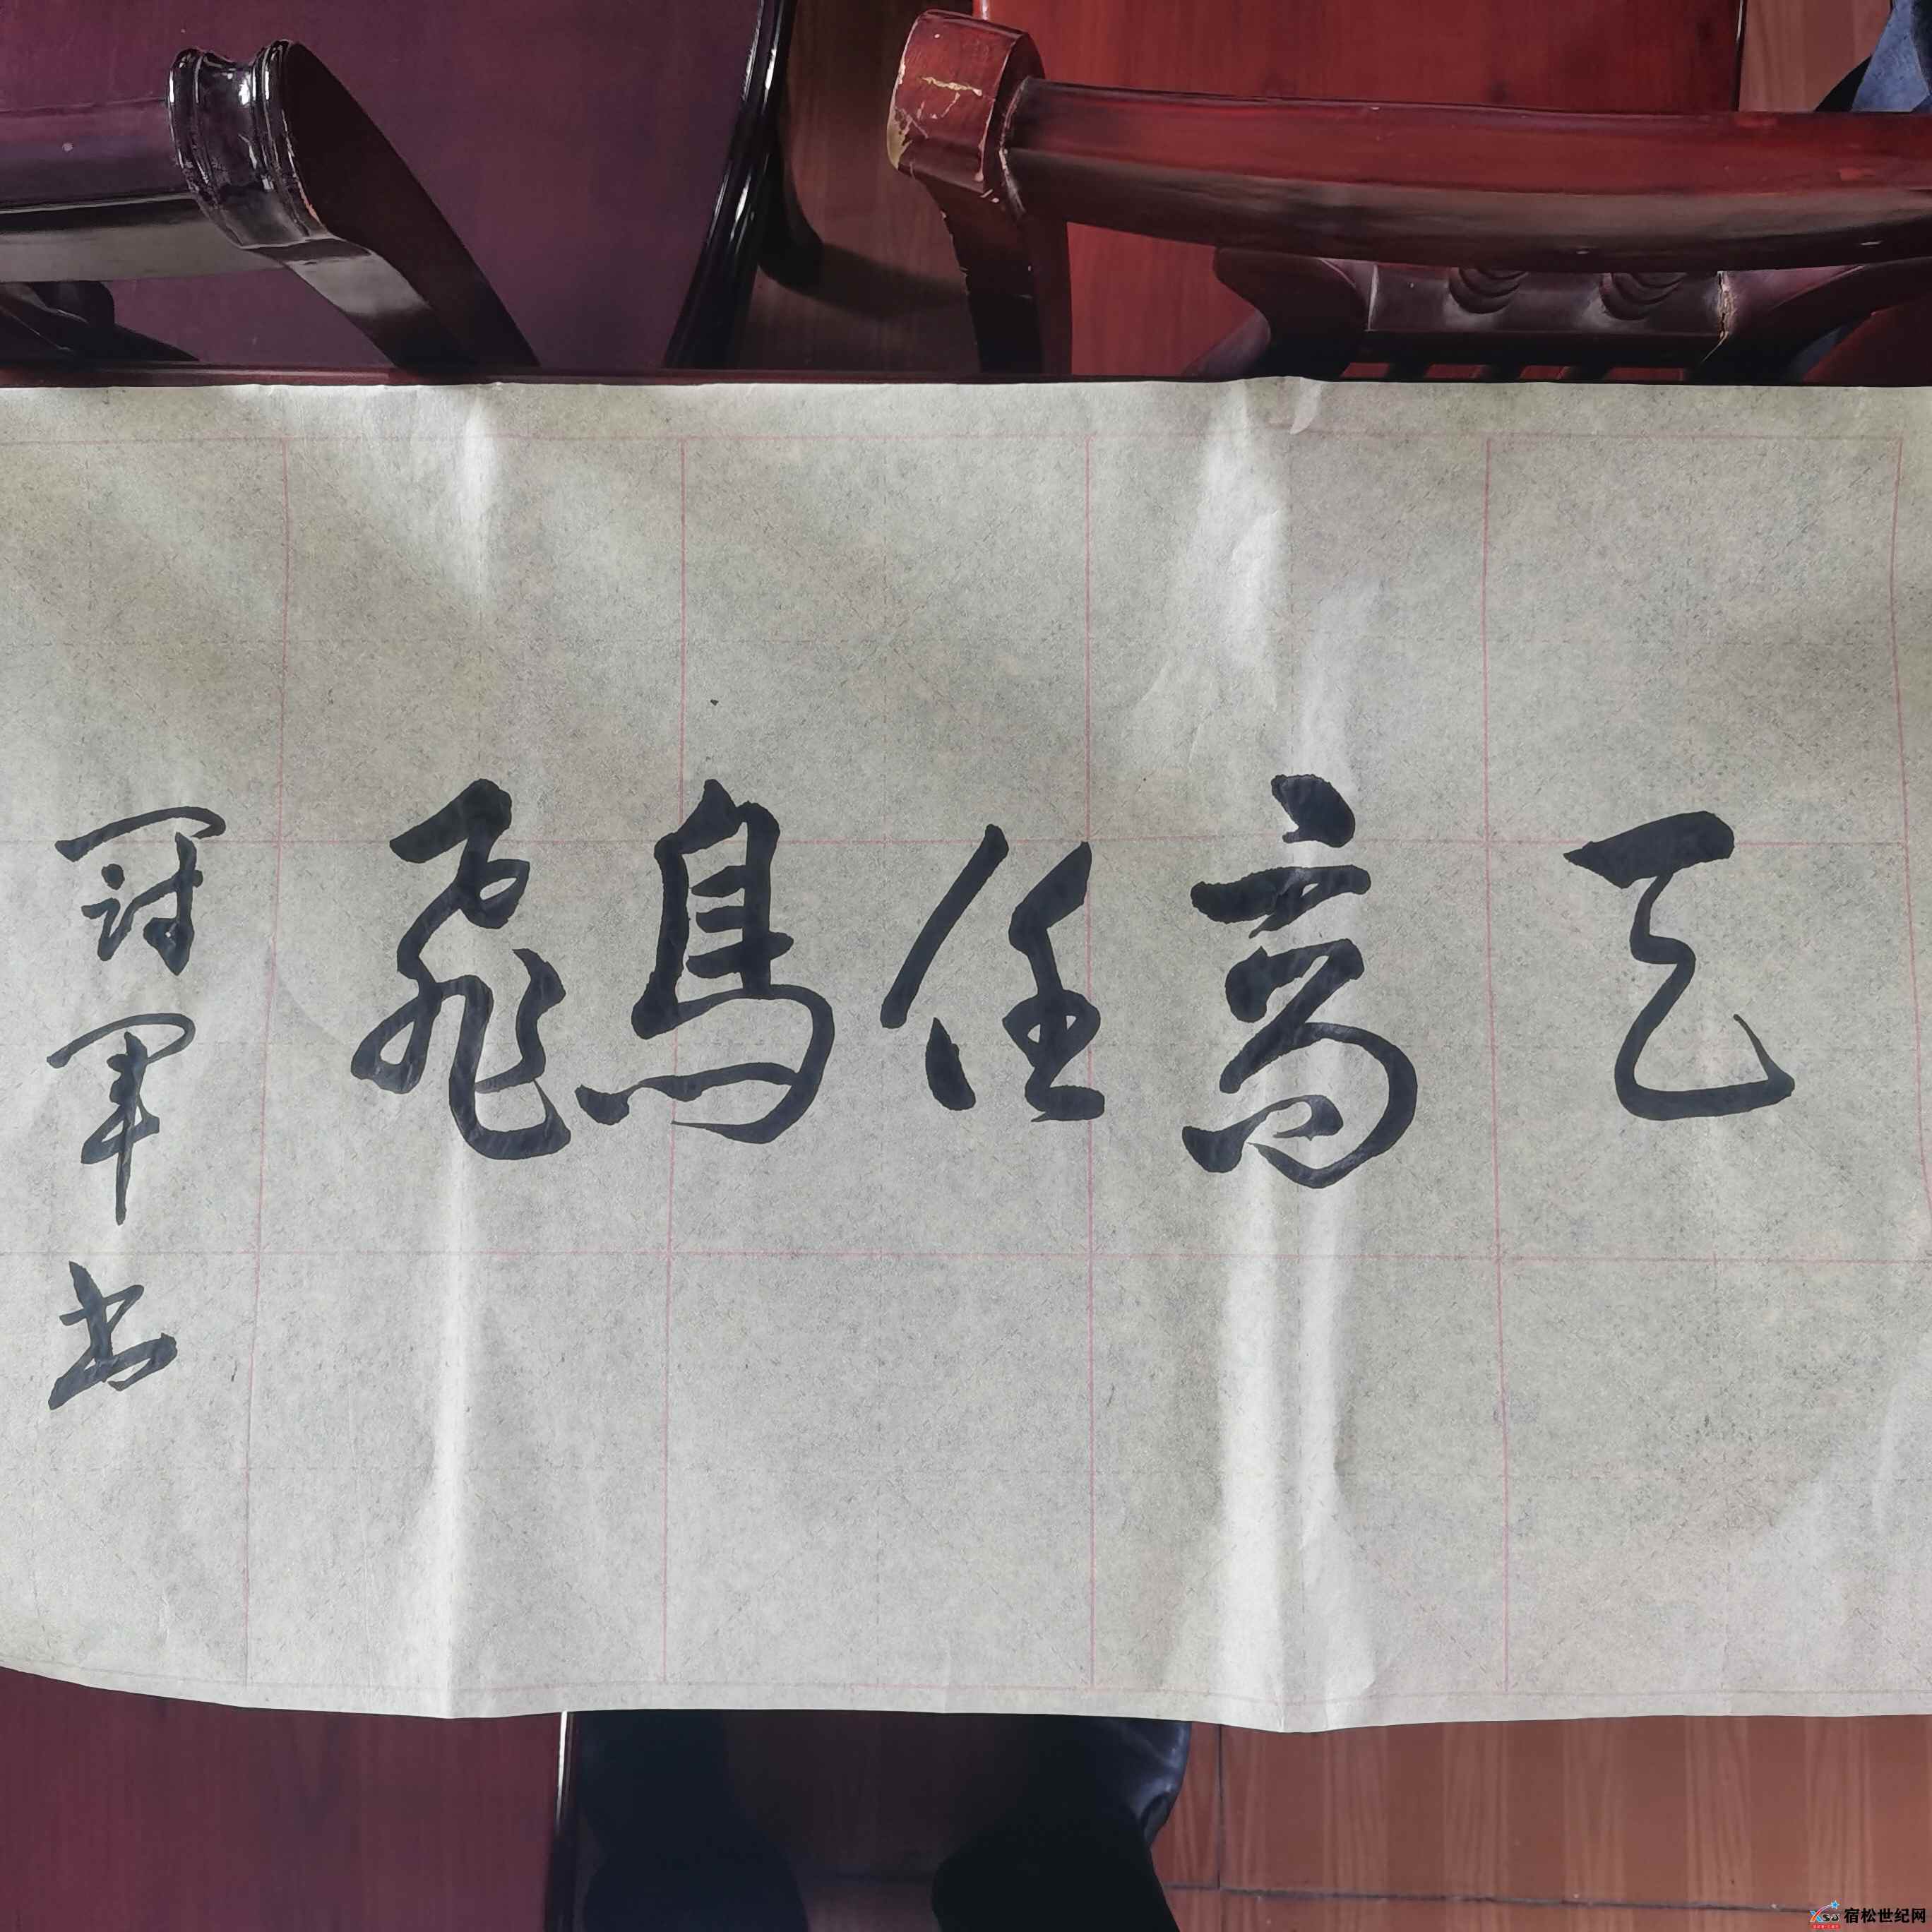 天高任鳥飛
冠軍书
宿松世纪网